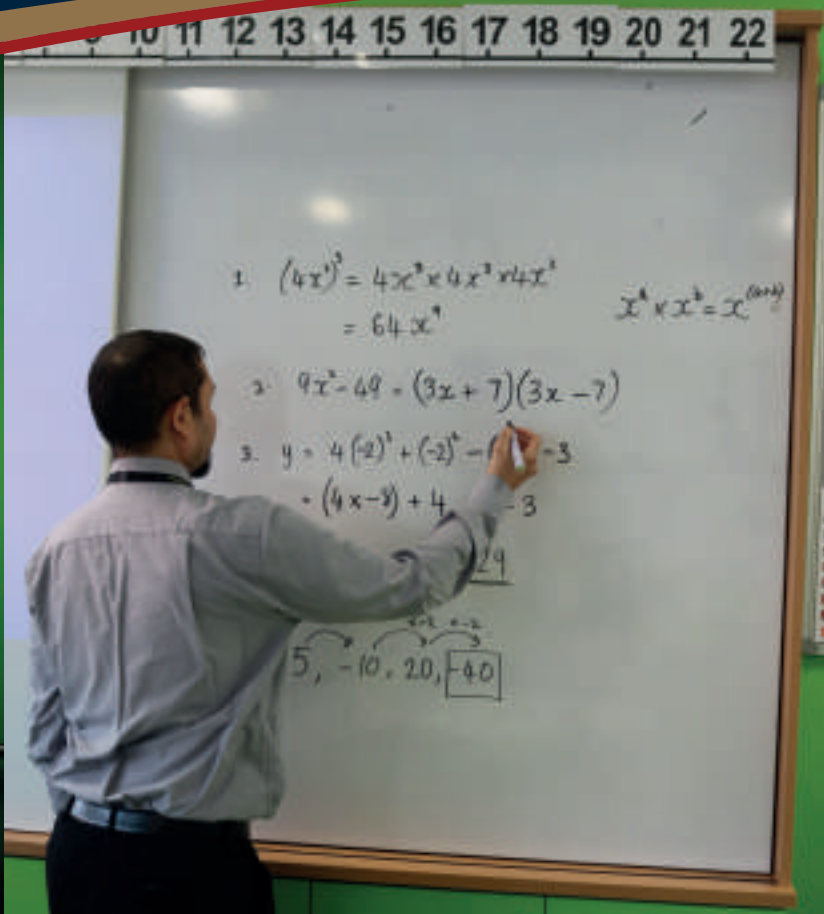 10 11 12 13 14 15 16 17 18 19 20 21 22
1. (4x³)³ = 4x³ × 4x³ × 4x³
= 64x⁹
xᵃ × xᵇ = x⁽ᵃ⁺ᵇ⁾
2. 9x² - 49 = (3x + 7)(3x - 7)
3. y = 4(-2)³ + (-2)² - ( - 3
= (4x-8) + 4 - 3
29
×-2 ×-2
5, -10, 20, -40